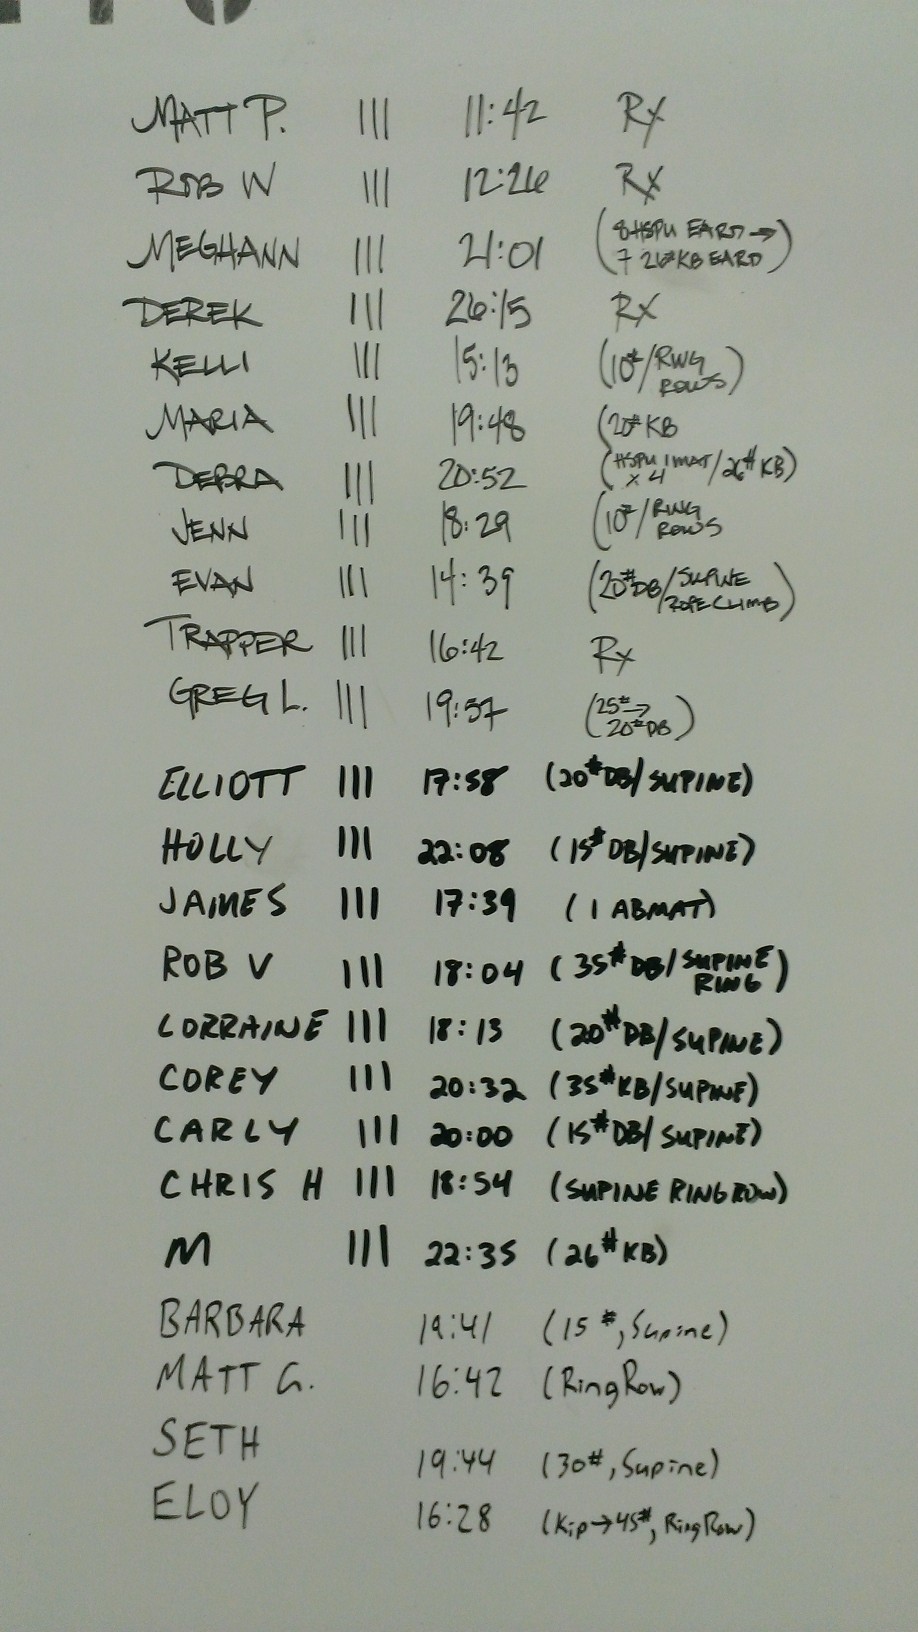 MATT P. ||| 11:42 Rx
ROB W ||| 12:26 Rx
MEGHANN ||| 21:01 (8 HSPU EARD →
7 26# KB EARD)
DEREK ||| 26:15 Rx
KELLI ||| 15:13 (10#/RING
ROWS)
MARIA ||| 19:48 (20# KB
DEBRA ||| 20:52 (HSPU 1 MAT/26# KB)
x 4
JENN ||| 18:29 (10#/RING
ROWS
EVAN ||| 14:39 (20# DB/SUPINE
ROPE CLIMB)
TRAPPER ||| 16:42 Rx
GREG L. ||| 19:57 (25# →
20# DB)
ELLIOTT ||| 17:58 (20# DB/SUPINE)
HOLLY ||| 22:08 (15# DB/SUPINE)
JAMES ||| 17:39 (1 ABMAT)
ROB V ||| 18:04 (35# DB/SUPINE
RING)
LORRAINE ||| 18:13 (20# DB/SUPINE)
COREY ||| 20:32 (35# KB/SUPINE)
CARLY ||| 20:00 (15# DB/SUPINE)
CHRIS H ||| 18:54 (SUPINE RING ROW)
M ||| 22:35 (26# KB)
BARBARA 19:41 (15#, Supine)
MATT G. 16:42 (Ring Row)
SETH 19:44 (30#, Supine)
ELOY 16:28 (Kip→45#, Ring Row)